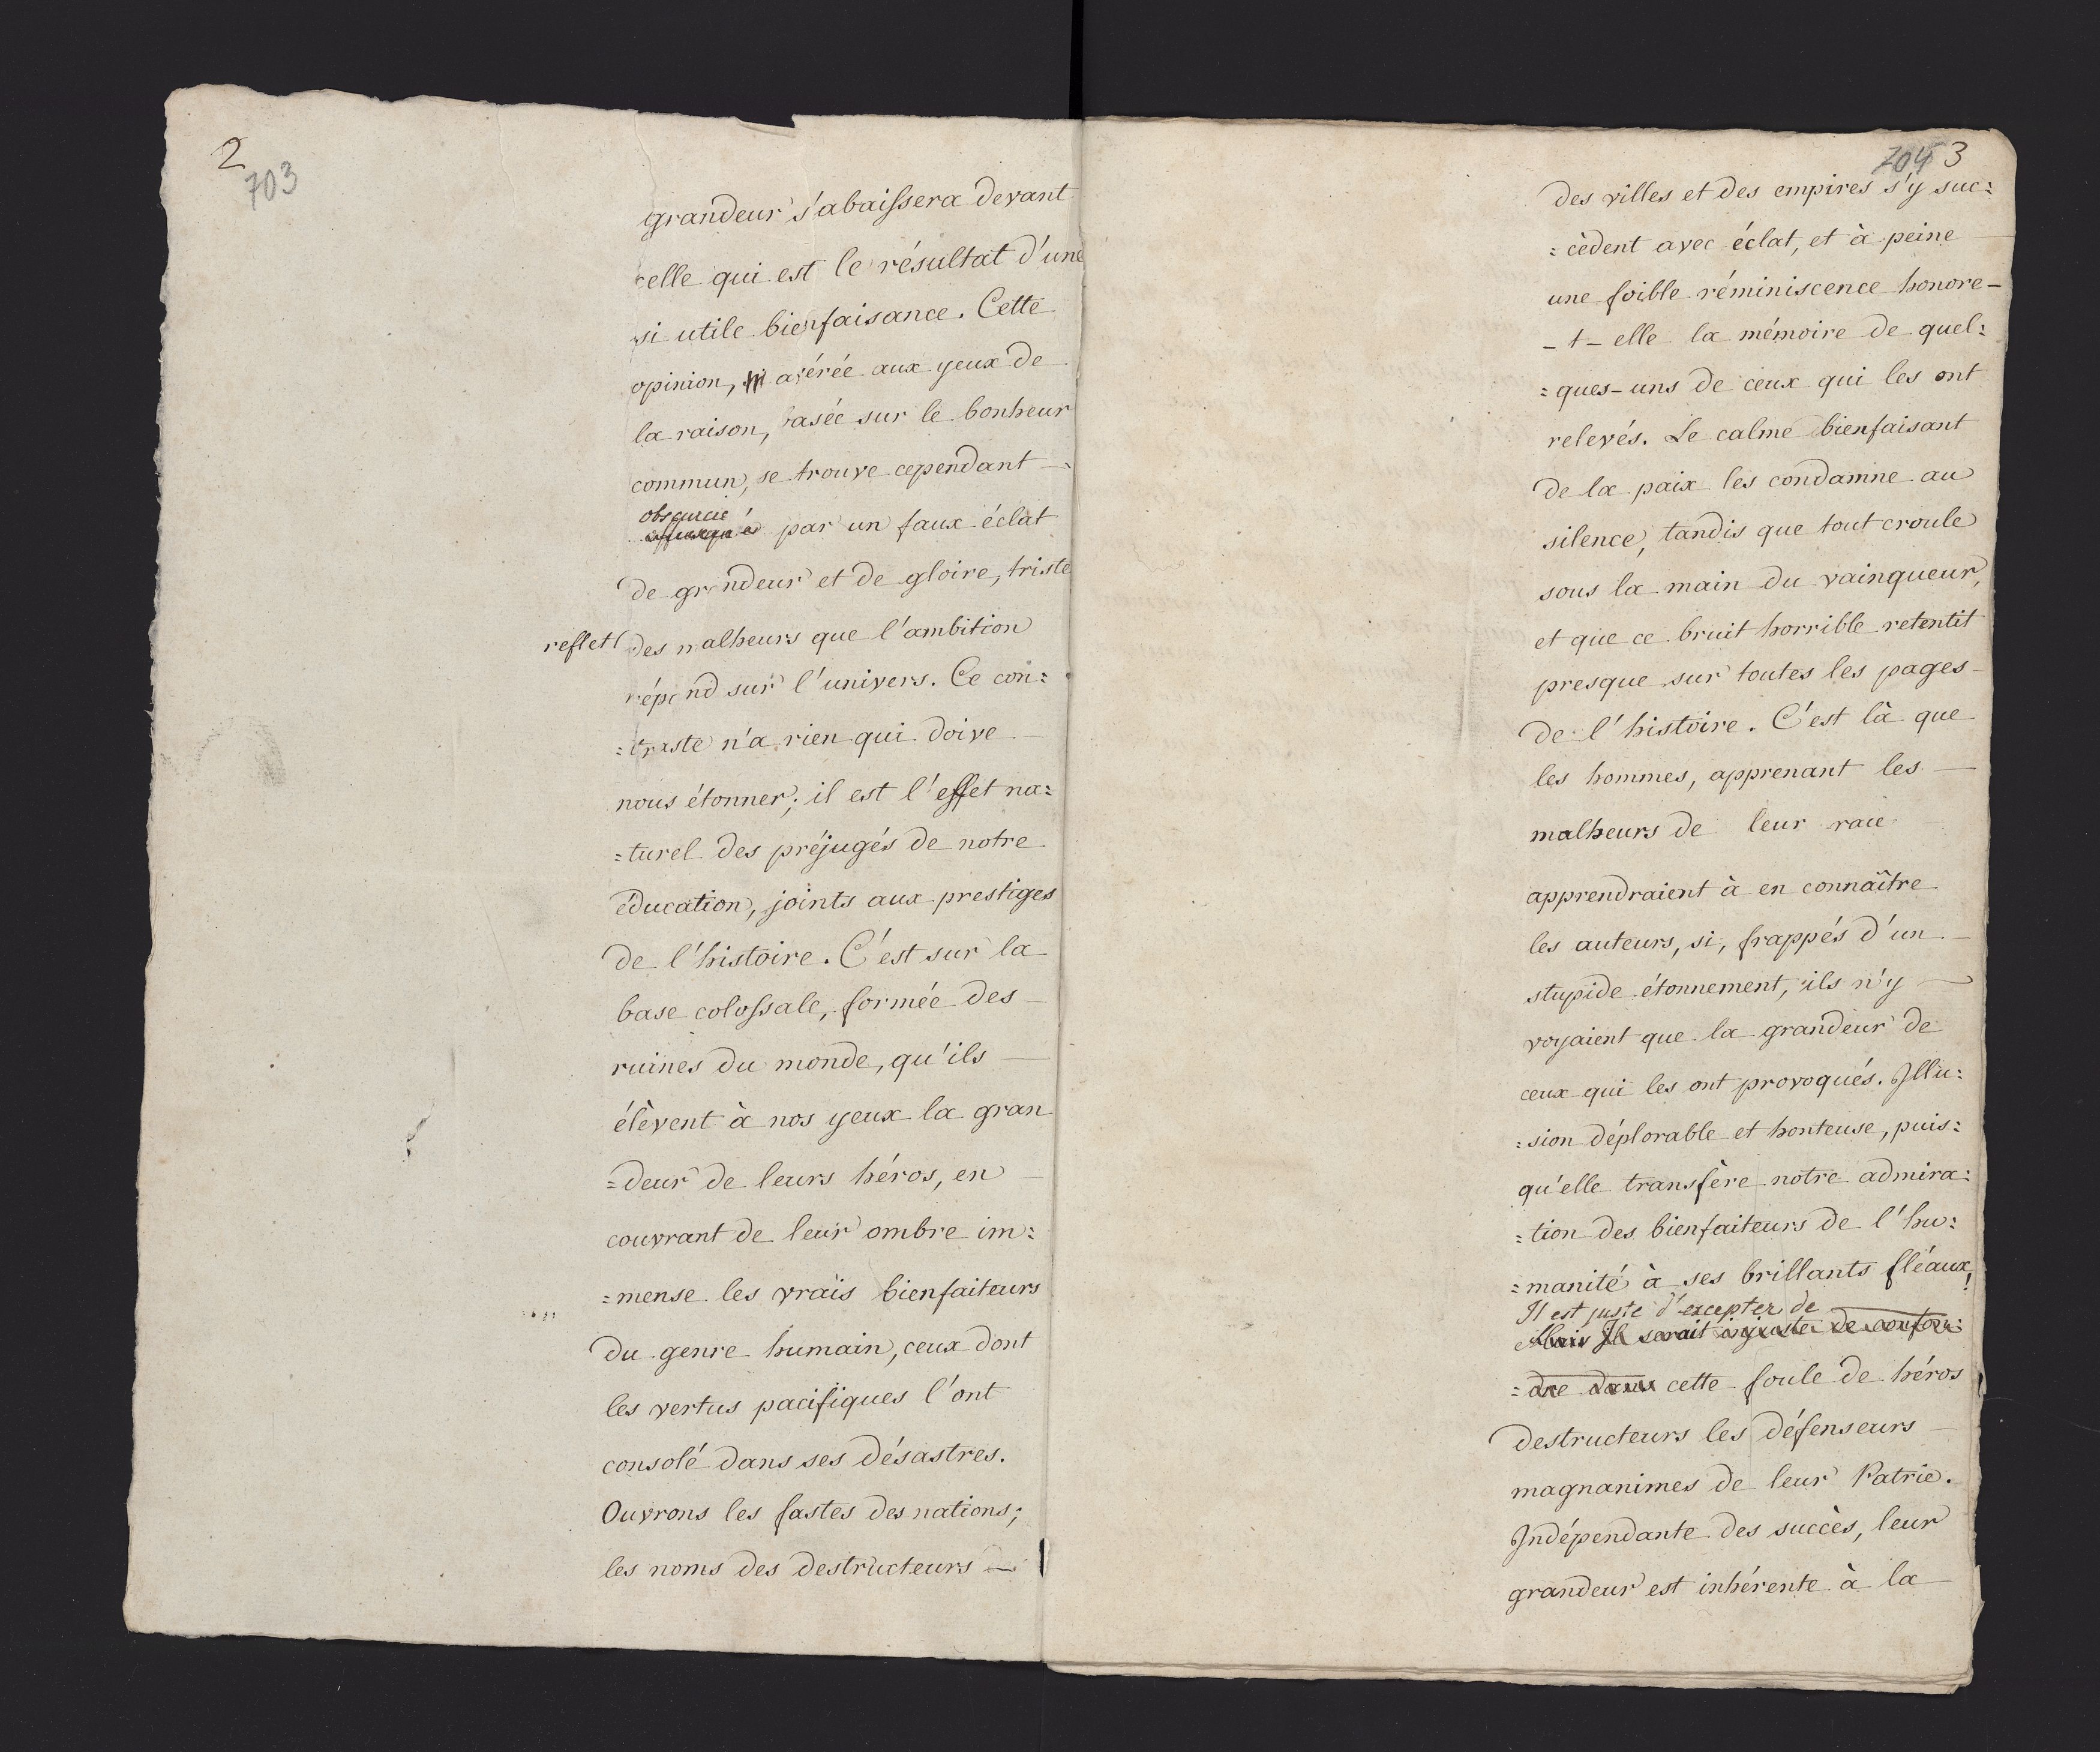 2
703
grandeur s'abaissera devant
celle qui est le résultat d'une
si utile bienfaisance. Cette
opinion, avérée aux yeux de
la raison, basée sur le bonheur
commun, se trouve cependant —
obscurcie
par un faux éclat
de grandeur et de gloire, triste
reflet des malheurs que l'ambition
répand sur l'univers. Ce con:
:traste n'a rien qui doive
nous étonner; il est l'effet na:
:turel des préjugés de notre
éducation, joints aux prestiges
de l'histoire. C'est sur la
base colossale, formée des
ruines du monde, qu'ils —
élèvent à nos yeux la gran
=deur de leurs héros, en
couvrant de leur ombre im:
=mense les vrais bienfaiteurs
du genre humain, ceux dont
les vertus pacifiques l'ont
consolé dans ses désastres.
Ouvrons les fastes des nations;
les noms des destructeurs —
704 3
des villes et des empires s'y suc:
:cèdent avec éclat, et à peine
une foible réminiscence honore-
-t-elle la mémoire de quel:
:ques-uns de ceux qui les ont
relevés. Le calme bienfaisant
de la paix les condamne au
silence, tandis que tout croule
sous la main du vainqueur,
et que ce bruit horrible retentit
presque sur toutes les pages
de l'histoire. C'est là que
les hommes, apprenant les —
malheurs de leur race
apprendraient à en connaître
les auteurs, si, frappés d'un —
stupide étonnement, ils n'y —
voyaient que la grandeur de
ceux qui les ont provoqués. Illu:
:sion déplorable et honteuse, puis:
qu'elle transfère notre admira:
:tion des bienfaiteurs de l'hu:
=manité à ses brillants fléaux!
Il est juste d'excepter de
Mais Il serait injuste de confon:
:dre dans cette foule de héros
destructeurs les défenseurs —
magnanimes de leur Patrie.
Indépendante des succès, leur
grandeur est inhérente à la